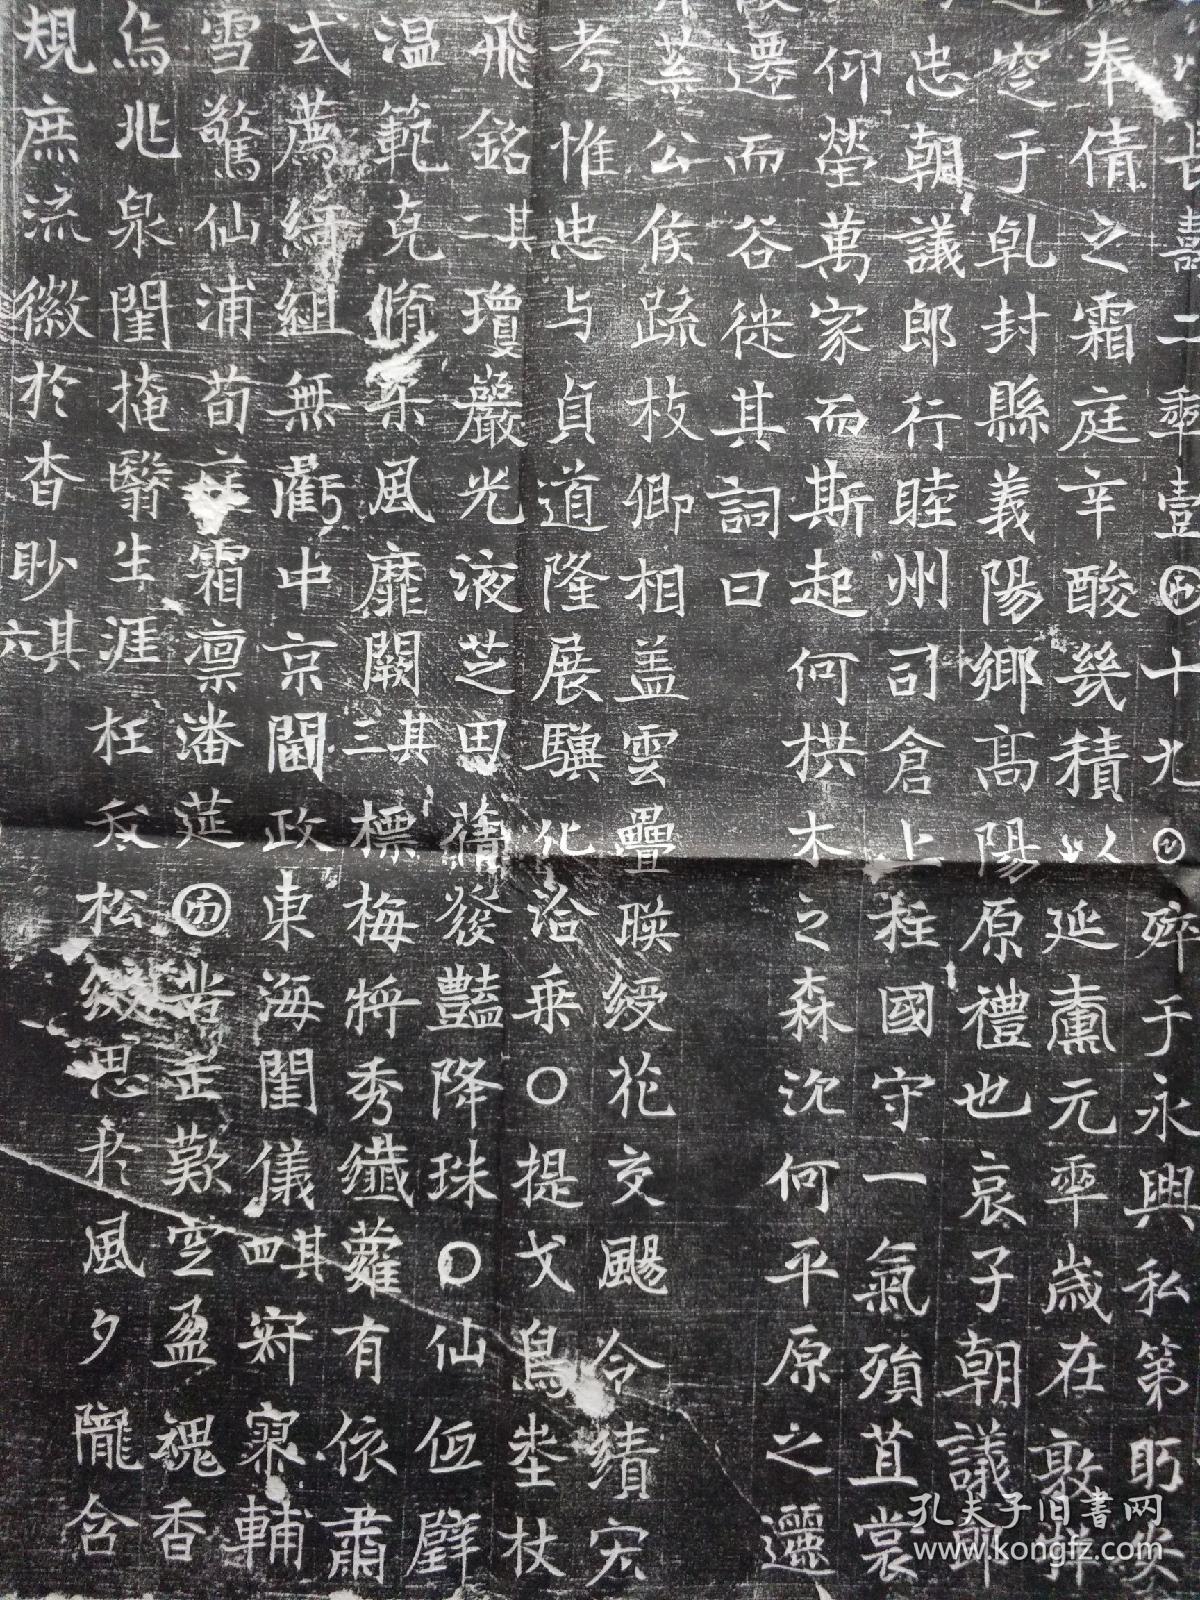 長壽二𠡦壹囝十九○卒于永興私第眄
奉倩之霜庭辛酸幾積以延薰元𠡦歲在敦牂
窆于乹封縣義陽鄉高陽原禮也哀子朝議郎
忠朝議郎行睦州司倉上柱國守一氣殞苴裳
仰塋萬家而斯起何拱木之森沈何平原之邐
遷而谷徙其詞曰
葉公侯疏枝卿相盖雲疊映綬花交颺令績宏
考惟忠与貞道隆展驥化洽乗〇提戈烏埊杖
飛銘其二瓊巖光液芝田蘤發豔降珠〇仙伍壁
温範克脩柔風靡闕其三標梅將秀纖蘿有依肅
式薦絺組無虧中京闡政東海閨儀其四寂寞輔
雪驚仙浦荀庭霜凛潘莚囝甞歪歎空盈魂香
烏兆泉閨掩翳生涯枉𠑺松㲯思於風夕隴含
規庶流徽於杳眇其六
孔夫子旧書网
www.kongfz.com